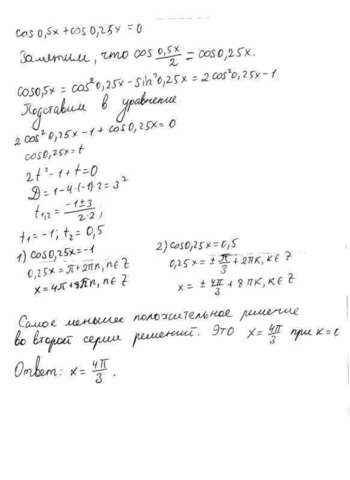 cos 0,5x + cos 0,25x = 0
Заметим, что cos 0,5x/2 = cos 0,25x.
cos 0,5x = cos² 0,25x - sin² 0,25x = 2cos² 0,25x - 1.
Подставим в уравнение
2cos² 0,25x - 1 + cos 0,25x = 0
cos 0,25x = t
2t² - 1 + t = 0
D = 1 - 4·(-1)·2 = 3²
t₁,₂ = (-1 ± 3)/(2·2);
t₁ = -1; t₂ = 0,5
1) cos 0,25x = -1
0,25x = π + 2πn, n ∈ Z
x = 4π + 8πn, n ∈ Z
2) cos 0,25x = 0,5
0,25x = ± π/3 + 2πк, к ∈ Z
x = ± 4π/3 + 8πк, к ∈ Z
Самое меньшее положительное решение
во второй серии решений. Это x = 4π/3 при к =
Ответ: x = 4π/3.